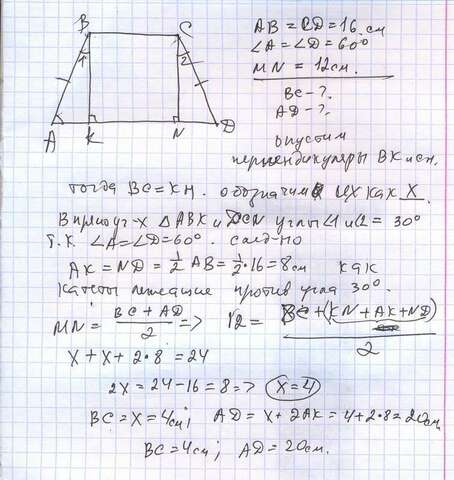 B
C
1
2
A
K
N
D
AB = CD = 16 см
∠A = ∠D = 60°
MN = 12 см.
BC - ?.
AD - ?.
опустим
перпендикуляры BK и CN.
тогда BC = KN. обозначим их как X.
В прямоуг-х △ ABK и DCN углы ∠1 и ∠2 = 30°
т.к. ∠A = ∠D = 60°. след-но
AK = ND = 1/2 AB = 1/2 · 16 = 8 см как
катеты лежащие против угла 30°.
MN = (BC + AD)/2 => 12 = (BC + (KN + AK + ND))/2
X + X + 2·8 = 24
2X = 24 - 16 = 8 => X = 4
BC = X = 4 см; AD = X + 2AK = 4 + 2·8 = 20 см
BC = 4 см; AD = 20 см.